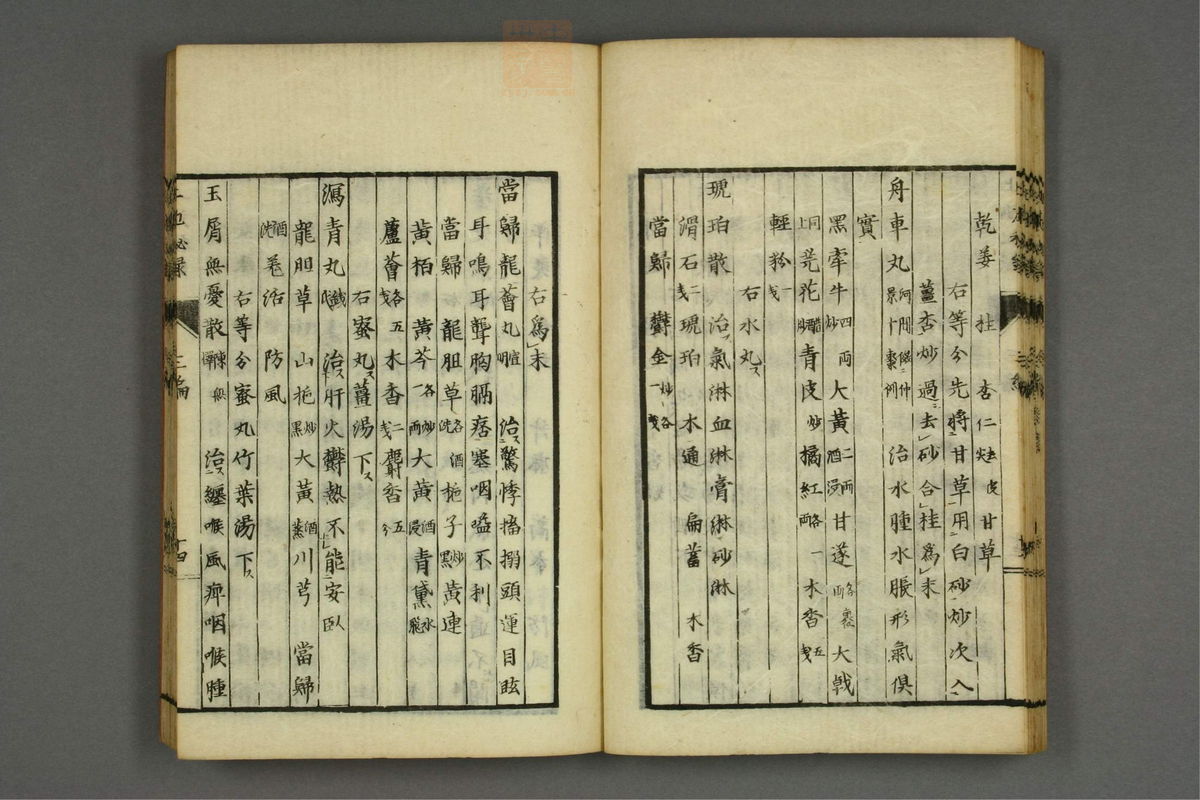 乾姜 桂 杏仁 甘草
右等分先將甘草用白砂炒次入
薑杏炒過去砂合桂爲末
舟車丸 治水腫水脹形氣俱
實
黑牽牛四両炒 大黃二両酒浸 甘遂 大戟
同上 芫花 青皮炒 橘紅各一両 木香五戋
輕粉一戋
右水丸ス
琥珀散 治氣淋血淋膏淋砂淋
滑石二戋 琥珀 木通 扁蓄 木香
當歸 欝金炒各一戋
右爲末
當歸龍薈丸 治驚悸搐搦頭運目眩
耳鳴耳聾胸膈痞塞咽嗌不利
當歸 龍胆草各酒洗 梔子炒黑 黃連
黃栢 黃芩各炒一両 大黃酒浸 青黛水飛
蘆薈各五戋 木香二戋 麝香五分
右蜜丸ス薑湯下ス
瀉青丸 治肝火欝熱不能安臥
龍胆草 山梔炒黑 大黃酒蒸 川芎 當歸
酒洗 羌活 防風
右等分蜜丸竹葉湯下ス
玉屑無憂散 治纏喉風痺咽喉腫